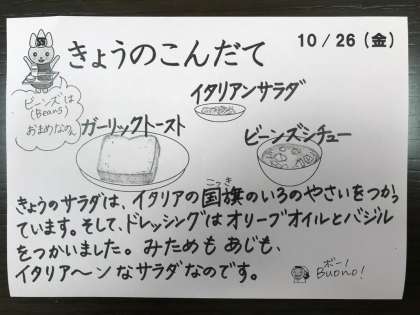 きょうのこんだて
10/26(金)
ビーンズは
(Beans)
おまめなのん
イタリアンサラダ
ガーリックトースト
ビーンズシチュー
きょうのサラダは、イタリアの国旗のいろのやさいをつかっ
こっき
ています。そして、ドレッシングはオリーブオイルとバジル
をつかいました。みためもあじも、
イタリア〜ンなサラダなのです。
ボー!
Buono!